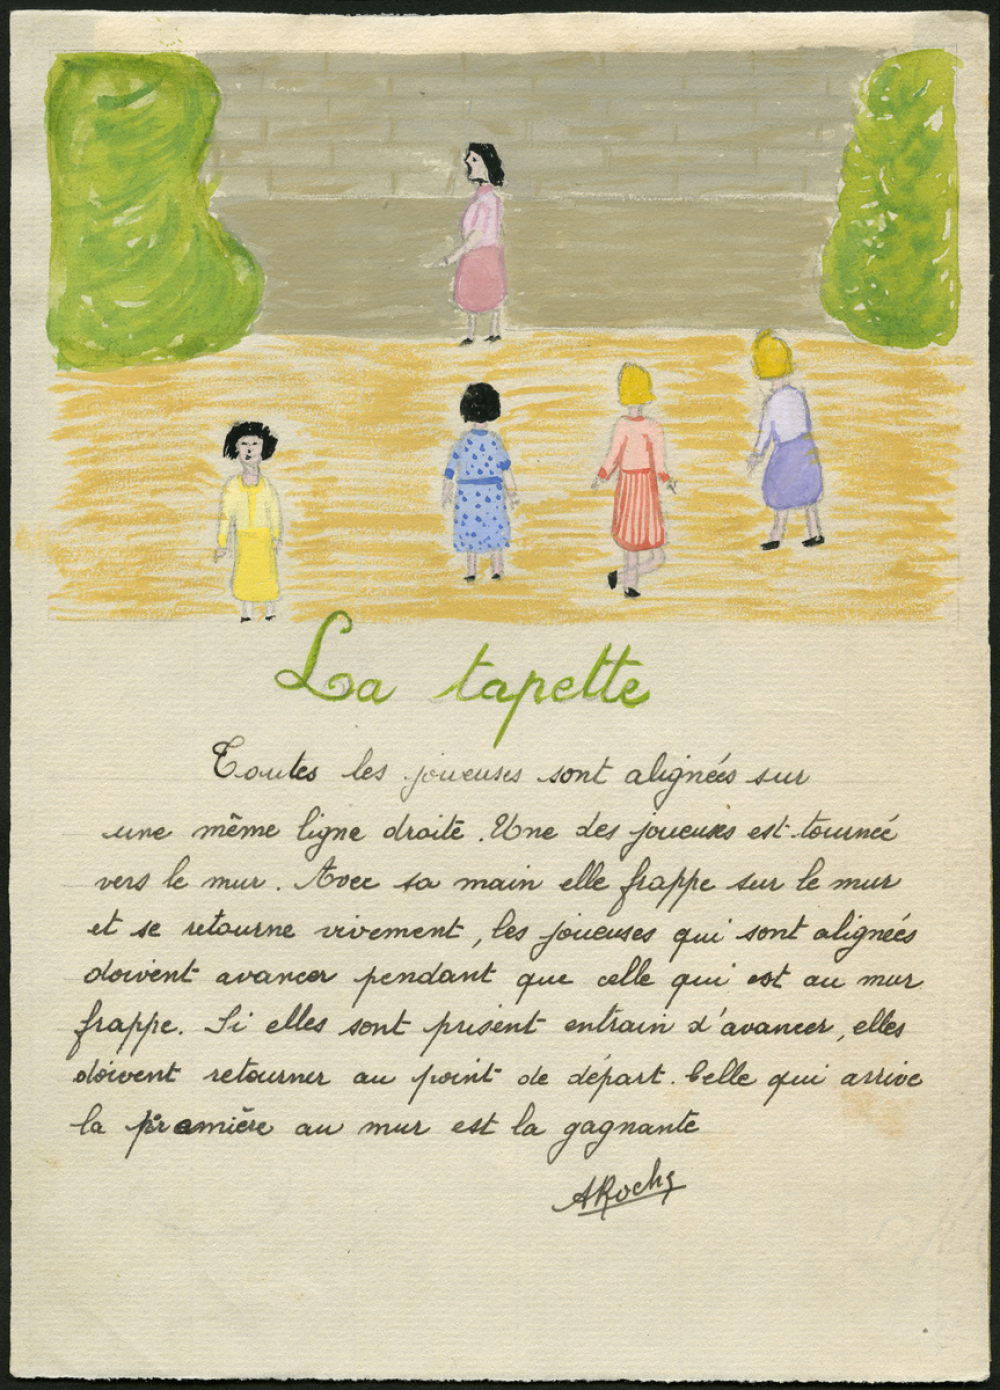 La tapette
Toutes les joueuses sont alignées sur
une même ligne droite. Une des joueuses est tournée
vers le mur. Avec sa main elle frappe sur le mur
et se retourne vivement, les joueuses qui sont alignées
doivent avancer pendant que celle qui est au mur
frappe. Si elles sont prisent entrain d'avancer, elles
doivent retourner au point de départ. Celle qui arrive
la première au mur est la gagnante
ARoche